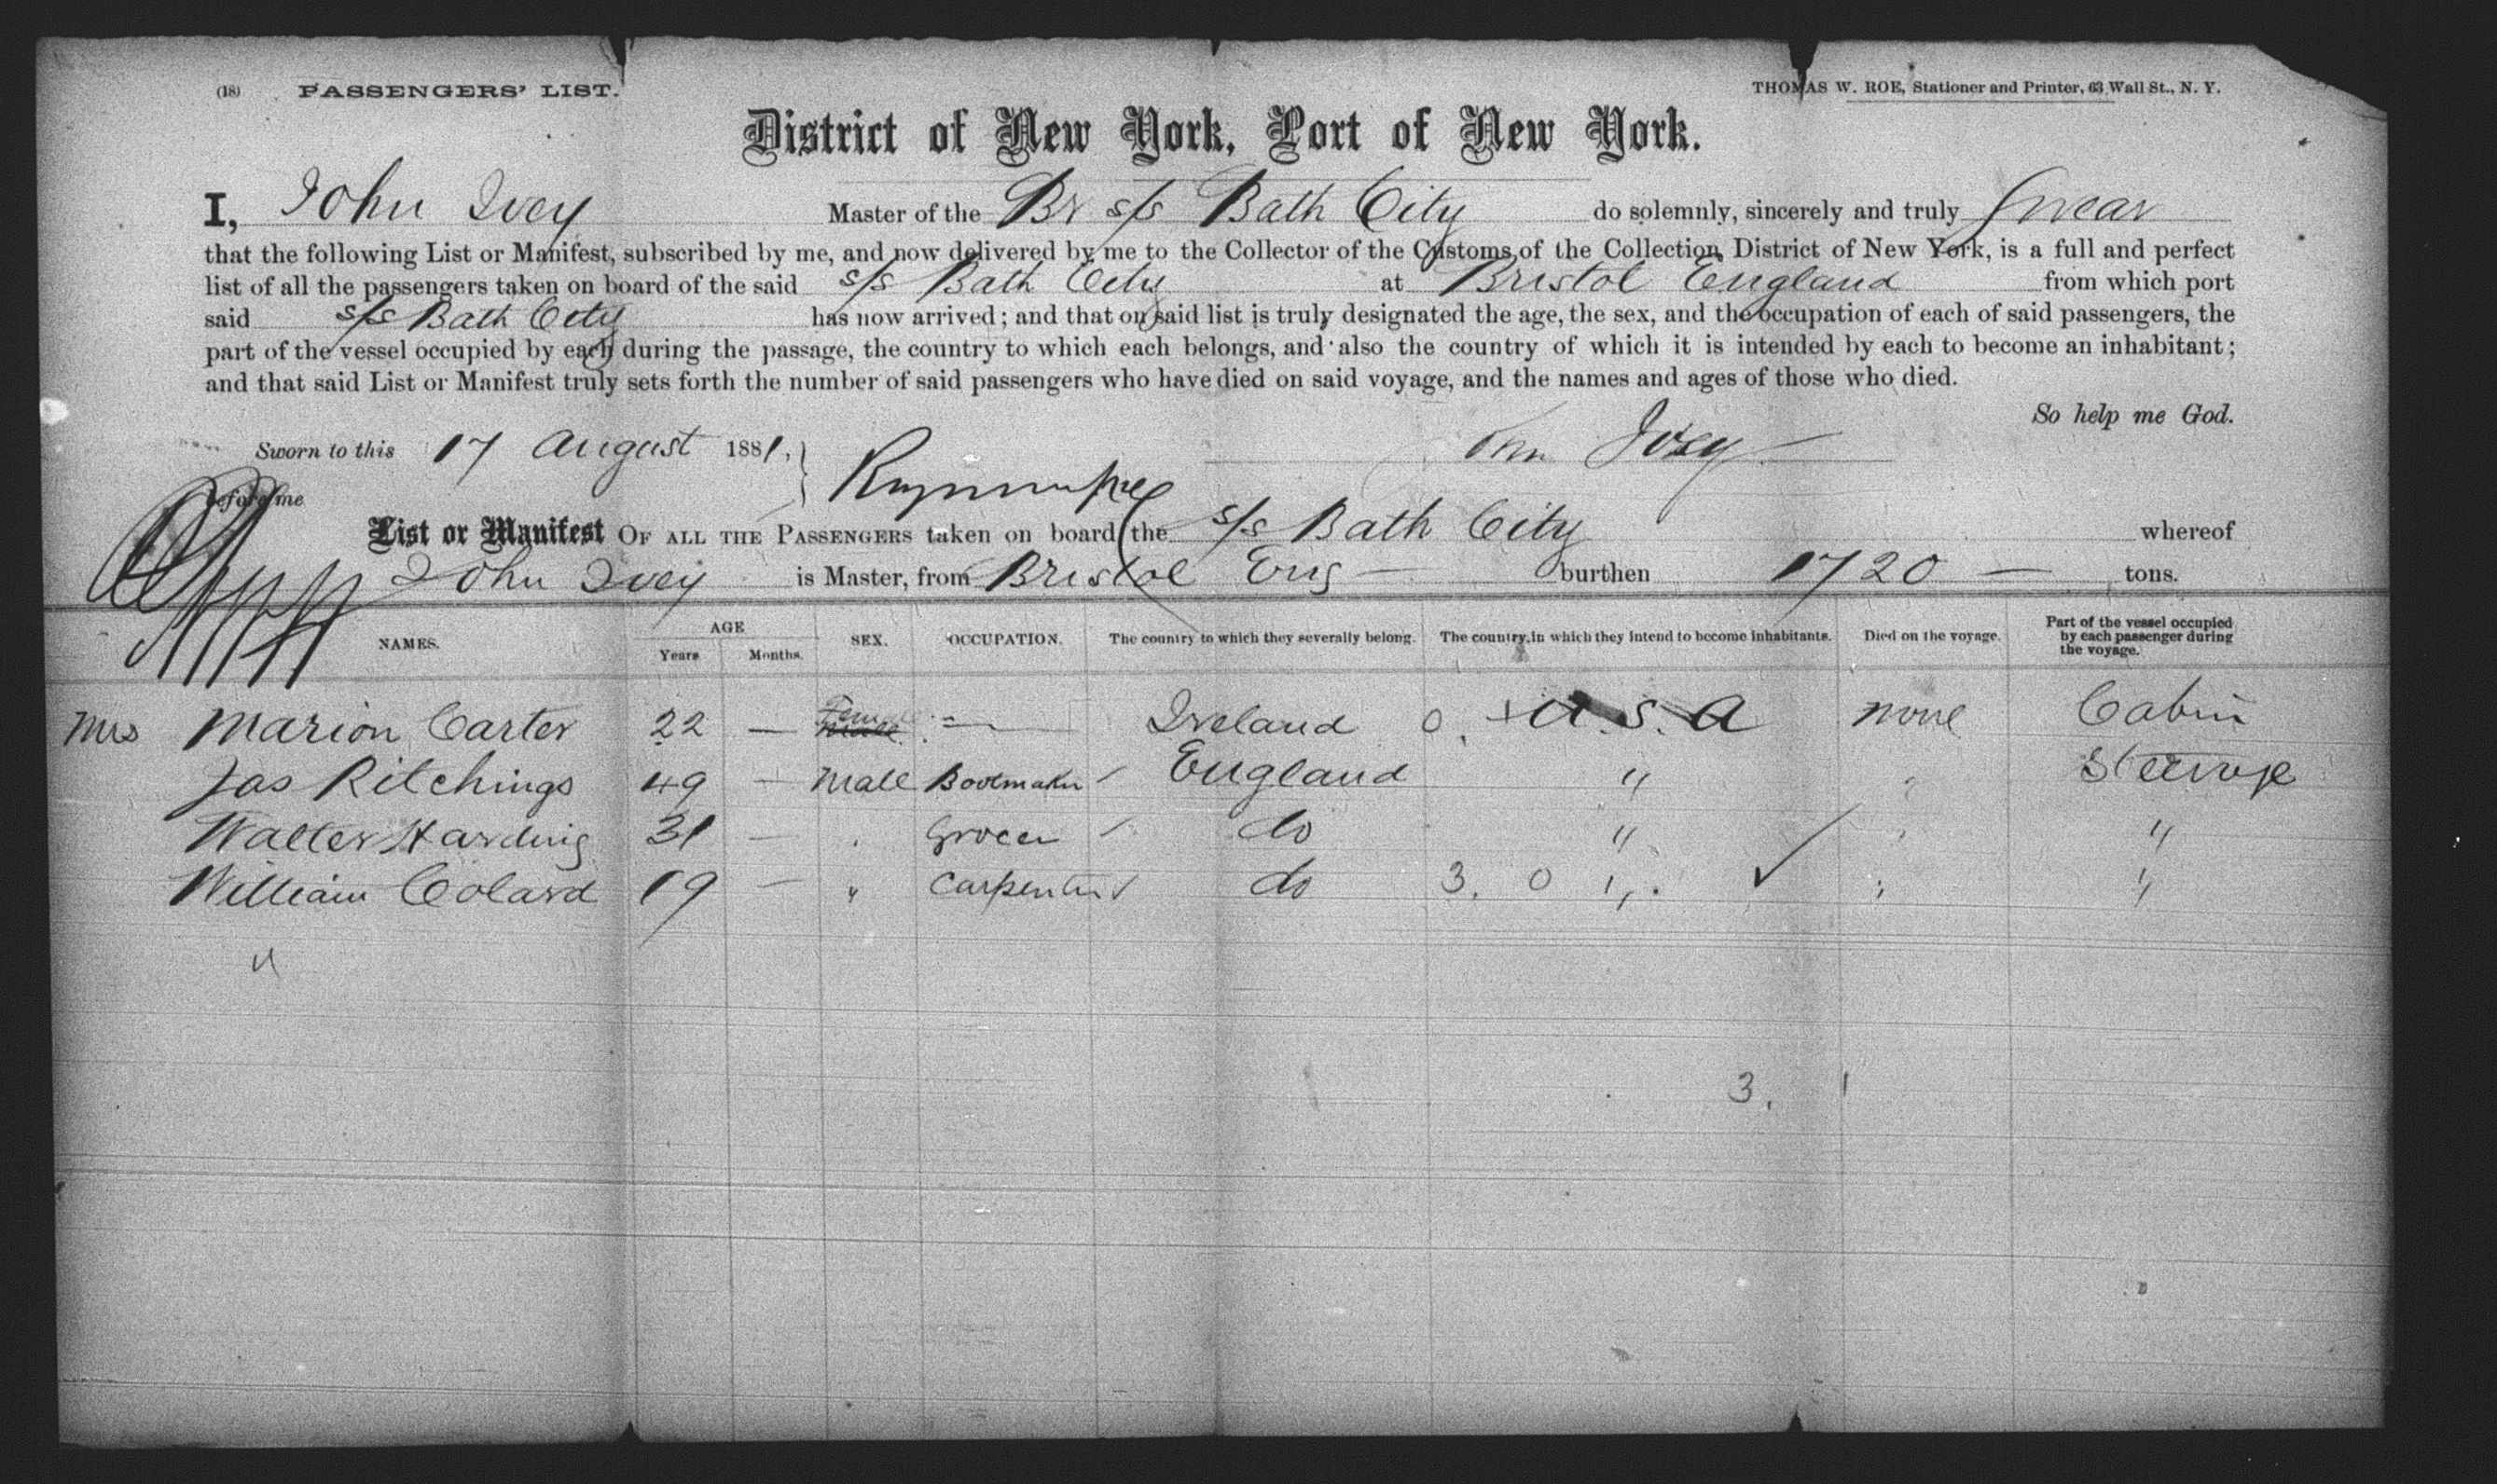 (18) PASSENGERS' LIST. THOMAS W. ROE, Stationer and Printer, 63 Wall St., N. Y.
District of New York, Port of New York.
I, John Ivey Master of the Br s/s Bath City do solemnly, sincerely and truly swear
that the following List or Manifest, subscribed by me, and now delivered by me to the Collector of the Customs of the Collection District of New York, is a full and perfect
list of all the passengers taken on board of the said s/s Bath City at Bristol England from which port
said s/s Bath City has now arrived; and that on said list is truly designated the age, the sex, and the occupation of each of said passengers, the
part of the vessel occupied by each during the passage, the country to which each belongs, and also the country of which it is intended by each to become an inhabitant;
and that said List or Manifest truly sets forth the number of said passengers who have died on said voyage, and the names and ages of those who died.
So help me God.
Sworn to this 17 August 1881, Ivey
before me
List or Manifest OF ALL THE PASSENGERS taken on board the s/s Bath City whereof
John Ivey is Master, from Bristol Eng — burthen 1720 — tons.
NAMES. AGE Years Months. SEX. OCCUPATION. The country to which they severally belong. The country in which they intend to become inhabitants. Died on the voyage. Part of the vessel occupied by each passenger during the voyage.
Mrs Marion Carter 22 — Fem Male — Ireland 0 U.S.A none Cabin
Jas Ritchings 49 — Male Bootmaker England " " Steerage
Walter Harding 31 — " Grocer do " " "
William Colard 19 — " Carpenter do 3. 0 " " "
3. 1